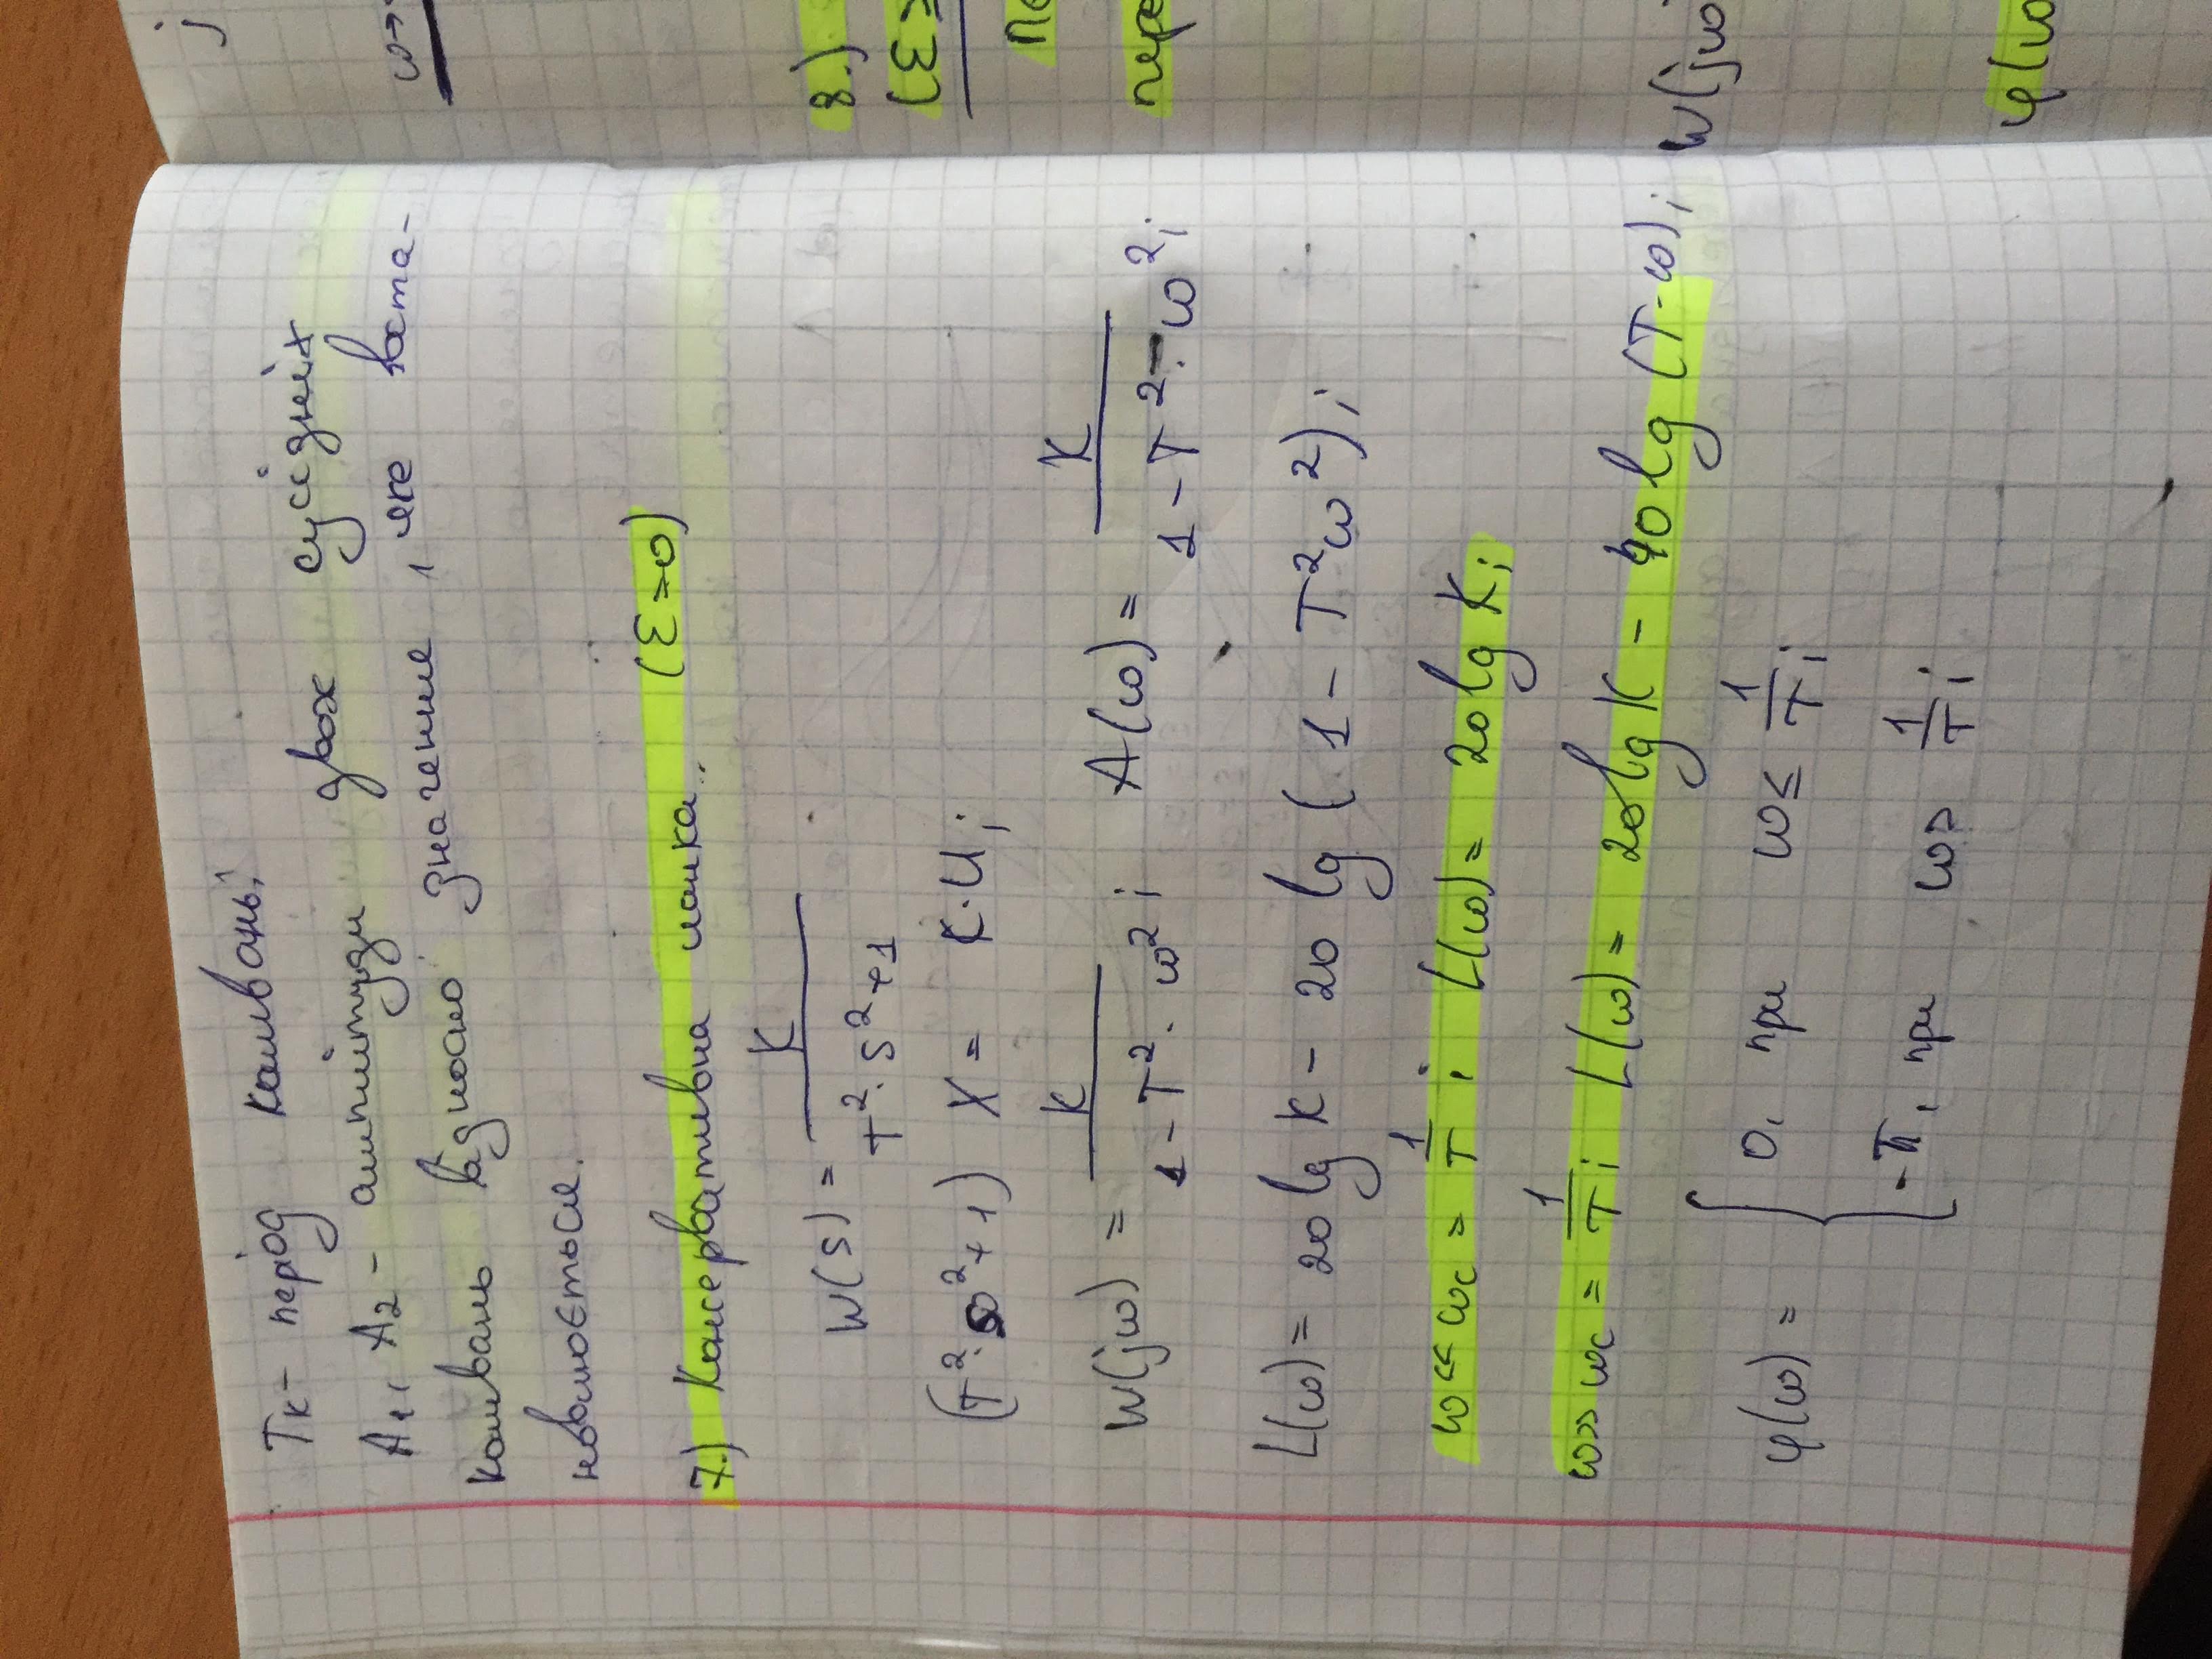 Tк - період коливань;
A1, A2 - амплітуди двох сусідніх
коливань відносно значення, яке вста-
новлюється.
7.) Консервативна ланка. (ε=0)
W(s) = K / (T²·s²+1)
(T²·s²+1) X = K·U;
W(jω) = K / (1-T²·ω²); A(ω) = K / (1-T²·ω²);
L(ω) = 20 lg K - 20 lg (1-T²ω²);
ω<<ωc = 1/T; L(ω) = 20 lg K;
ω>>ωc = 1/T; L(ω) = 20 lg K - 40 lg (T·ω);
φ(ω) = { 0, при ω ≤ 1/T;
-π, при ω > 1/T;
j
ω→
8.)
(ε≥
пере
W(jω)
φ(ω